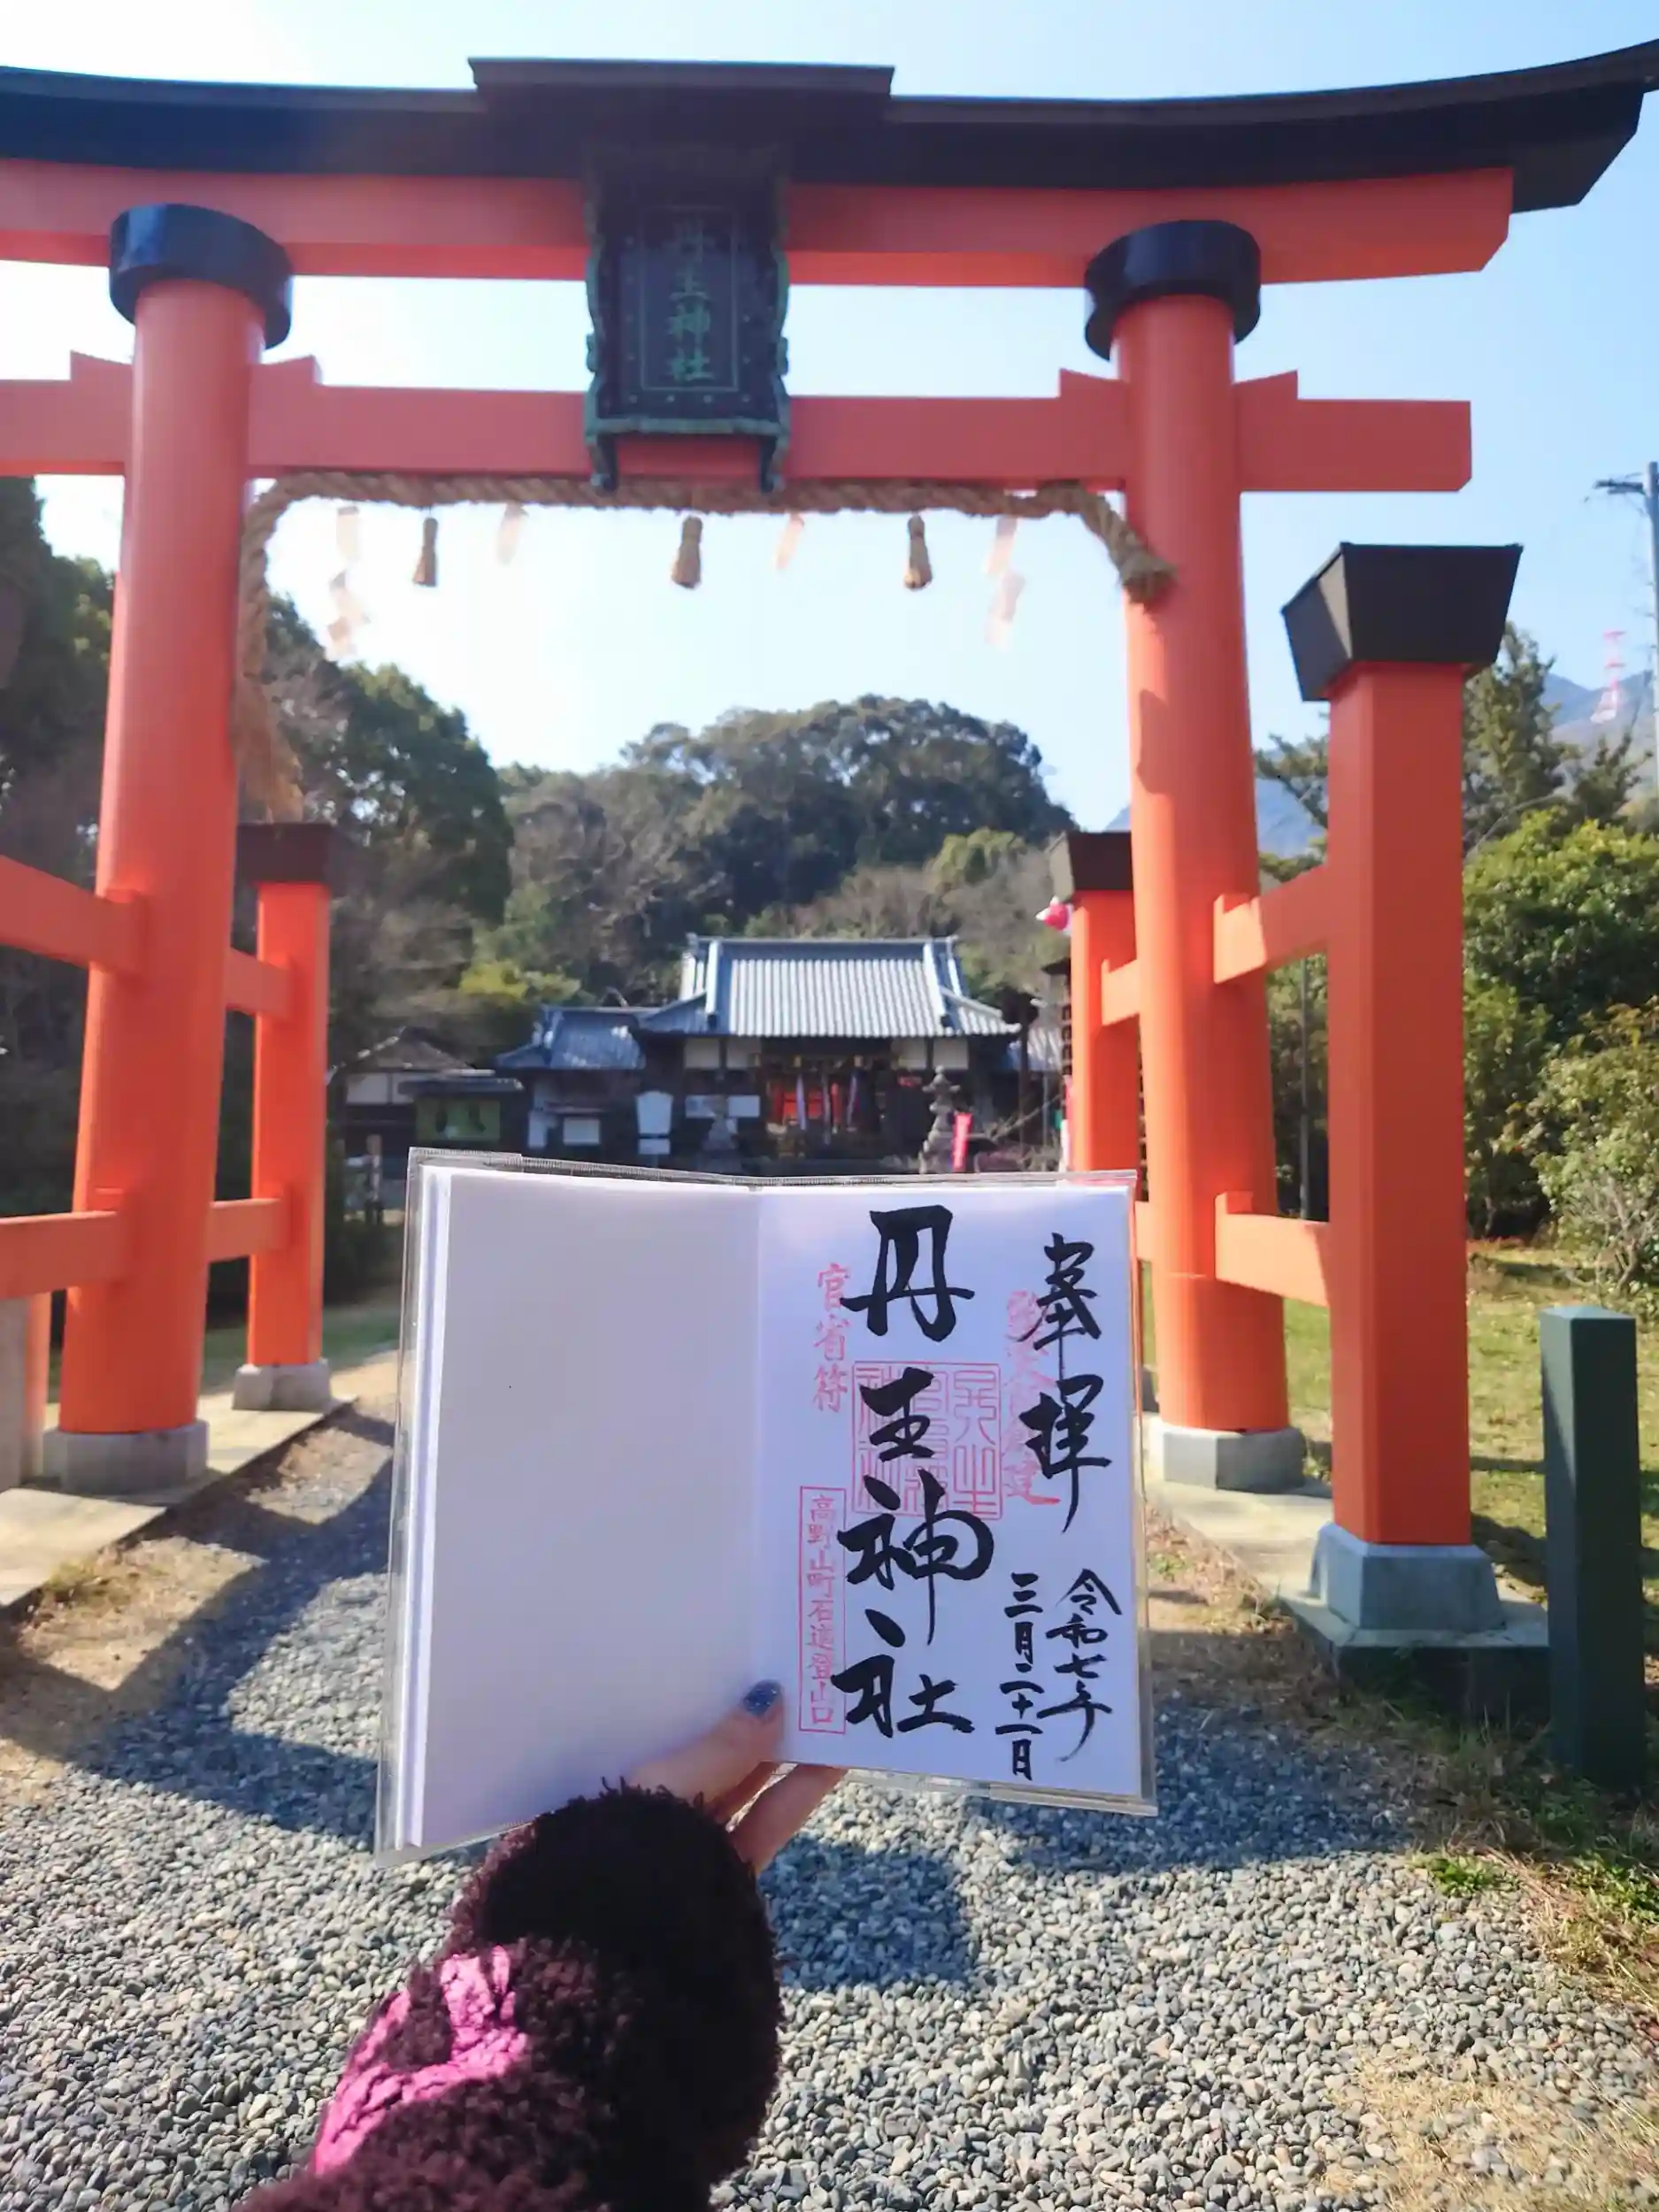 丹生神社
奉拝
令和七年
三月二十一日
丹生神社
官省符
高野山町石道登山口